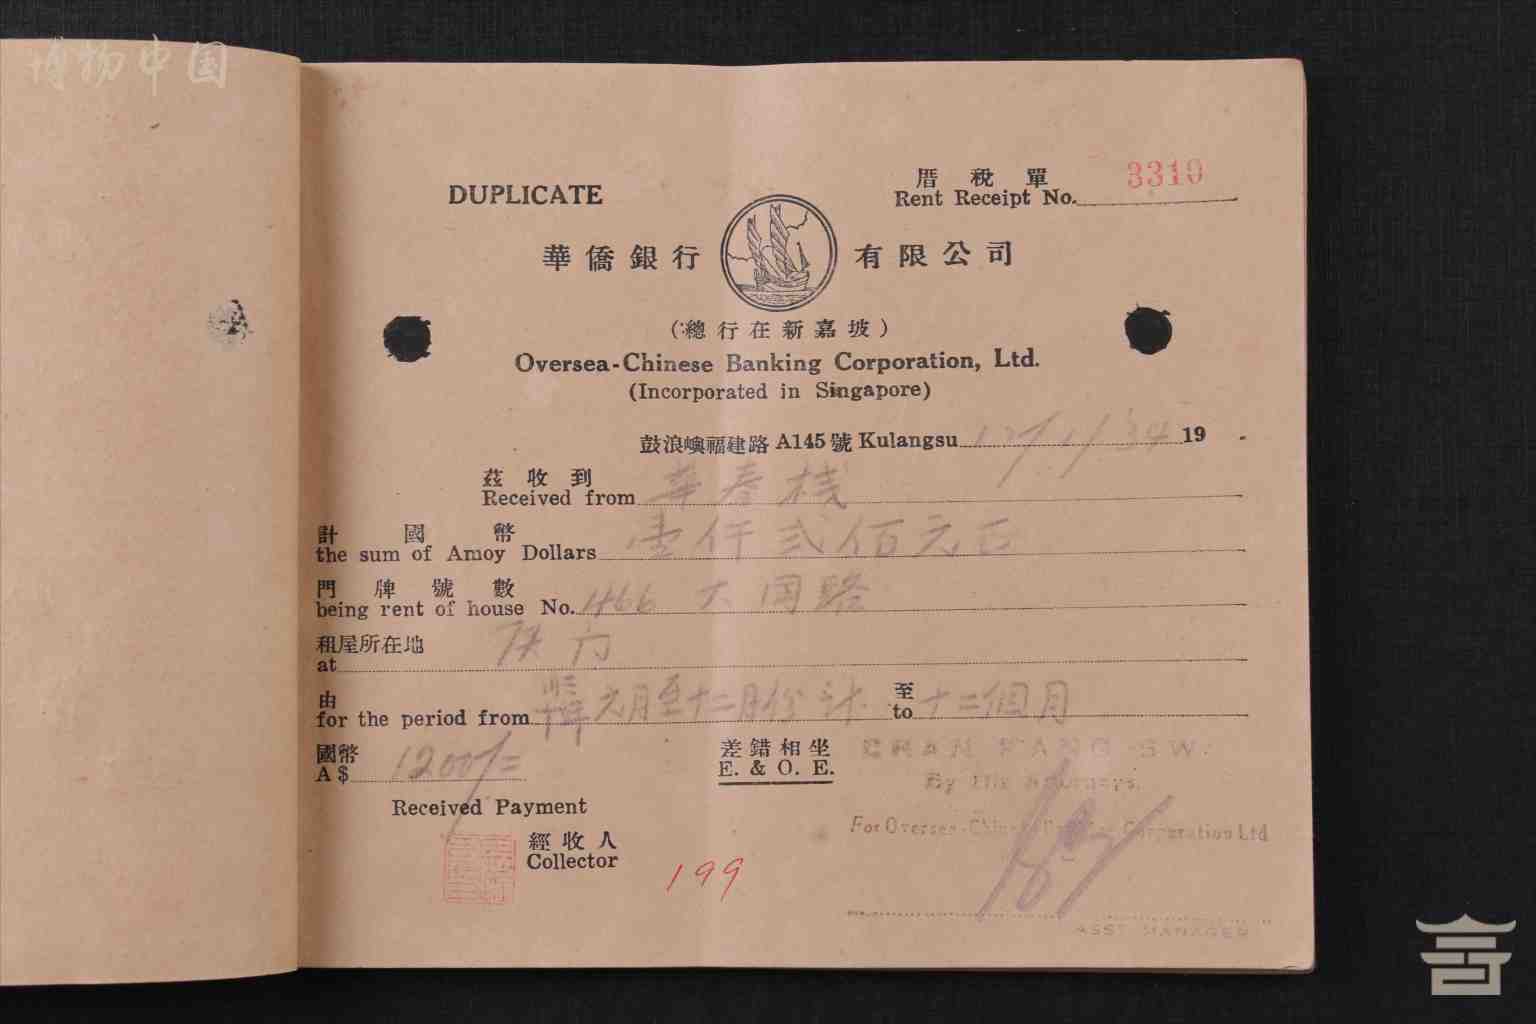 博物中国
DUPLICATE
厝税單 3310
Rent Receipt No.
華僑銀行 有限公司
(總行在新嘉坡)
Oversea-Chinese Banking Corporation, Ltd.
(Incorporated in Singapore)
鼓浪嶼福建路 A145號 Kulangsu 17/1/34 19
茲收到
Received from 華春棧
計國幣
the sum of Amoy Dollars 壹仟弍佰元正
門牌號數
being rent of house No. 466 大同路
租屋所在地
at 厦门
由 至
for the period from 元月至十二月份計 to 十二個月
國幣 差錯相坐
A $ 1200/= E. & O. E.
CHAN KANG SW
By His Attorneys,
Received Payment
For Oversea-Chinese Banking Corporation Ltd
經收人
Collector
199
ASST MANAGER